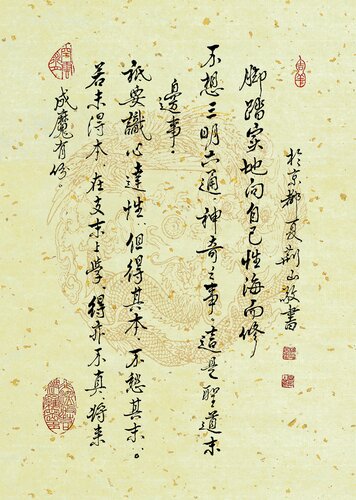 於京都夏荆山敬書
脚踏实地向自己性海而修
不想三明六通、神奇之事、這是聖道末
邊事。
祗要識心達性、但得其本、不愁其末。
若未得本、在支末上學、得亦不真、將来
成魔有份。